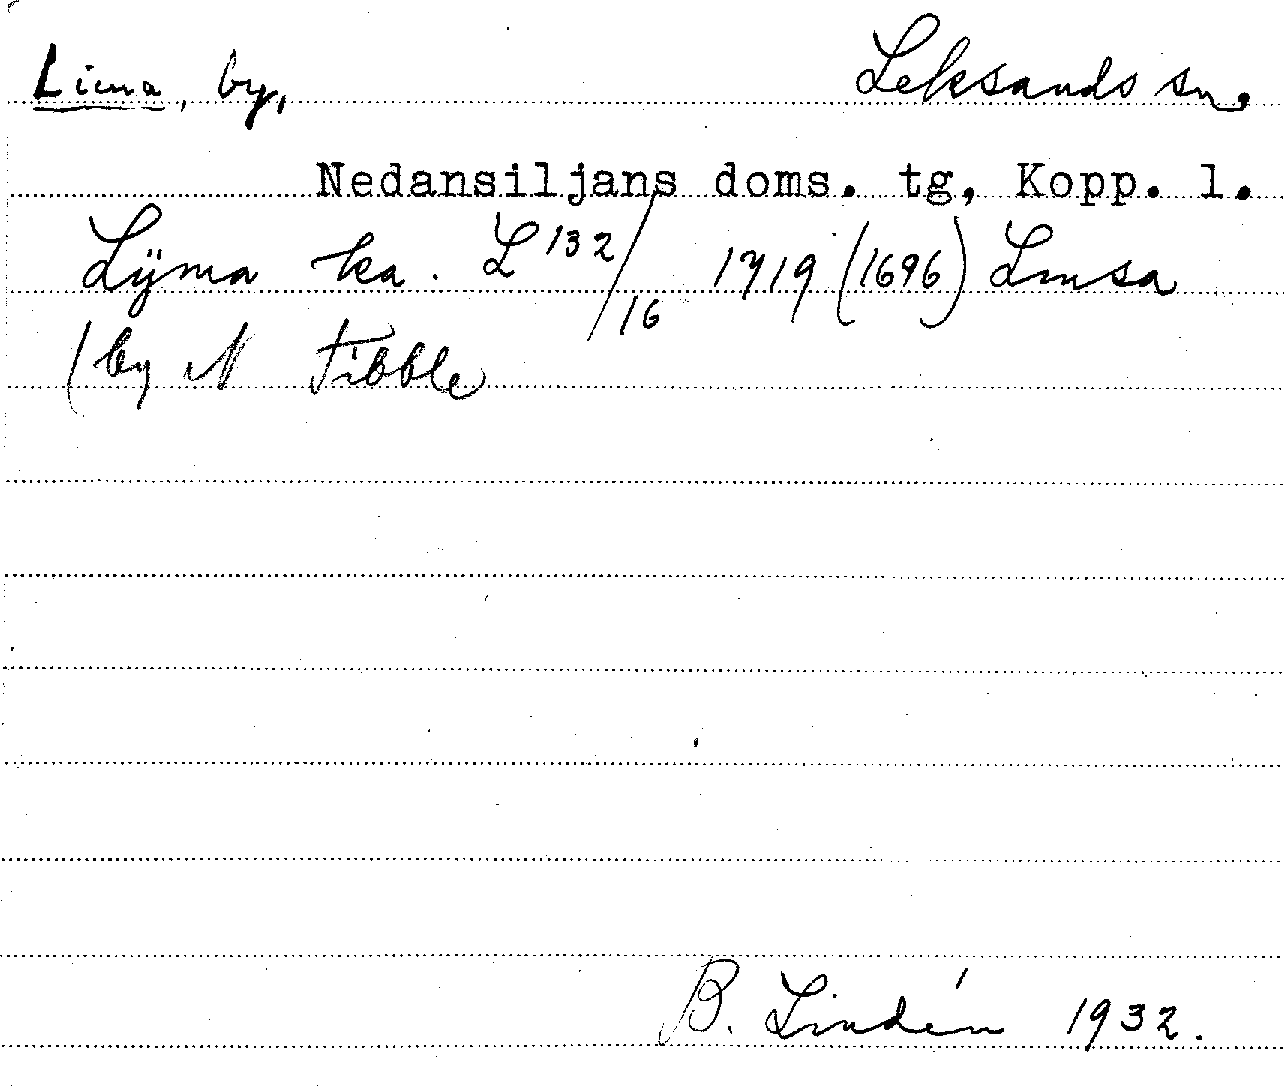 Lima, by, Leksands sn.
Nedansiljans doms. tg, Kopp. l.
Lÿma ka. L 132/16 1719 (1696) Lmsa
(by N Tibble
B. Lindén 1932.